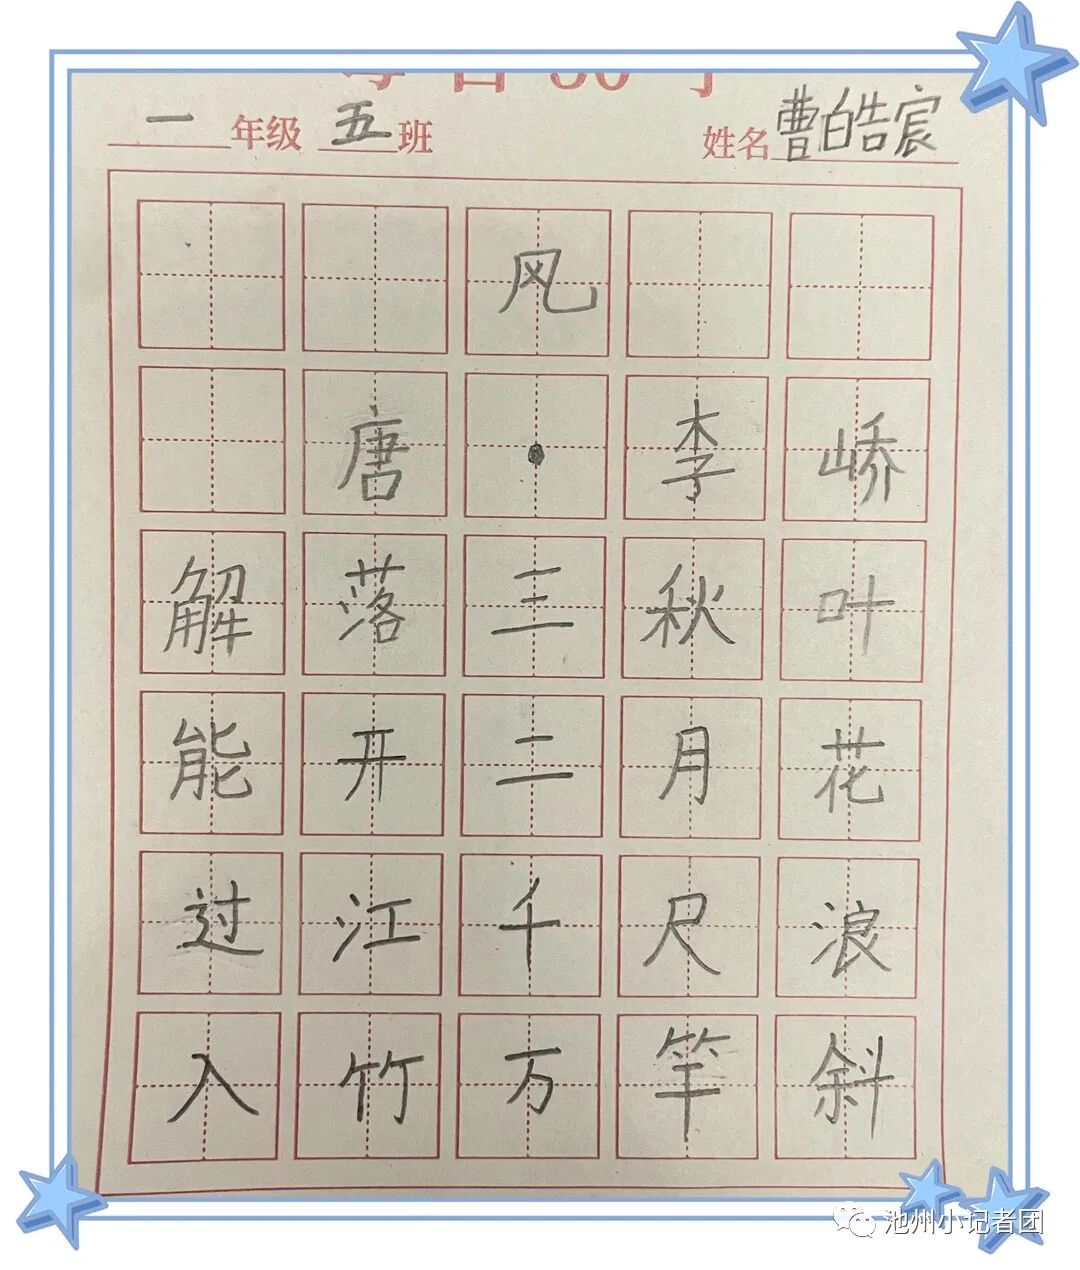 一年级 五班 姓名曹皓宸
风
唐·李峤
解落三秋叶
能开二月花
过江千尺浪
入竹万竿斜
池州小记者团